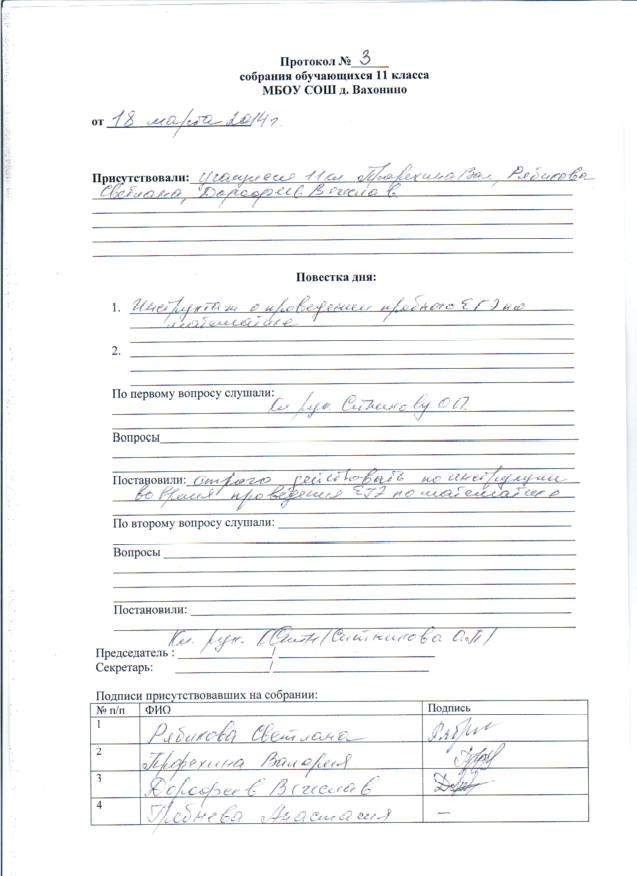 Протокол № 3
собрания обучающихся 11 класса
МБОУ СОШ д. Вахонино
от 18 марта 2014 г.
Присутствовали: Учащиеся 11 кл Прорехина Вал, Рябикова
Светлана, Дорофеев Вячеслав
Повестка дня:
1. Инструктаж о проведении пробного ЕГЭ по
математике
2.
По первому вопросу слушали:
Кл рук. Ситникову О.П.
Вопросы
Постановили: строго действовать по инструкции
во время проведения ЕГЭ по математике
По второму вопросу слушали:
Вопросы
Постановили:
Кл. рук. /Ситникова О.П/
Председатель : /
Секретарь: /
Подписи присутствовавших на собрании:
№ п/п ФИО Подпись
1 Рябикова Светлана
2 Прорехина Валерия
3 Дорофеев Вячеслав
4 Грябнева Анастасия —